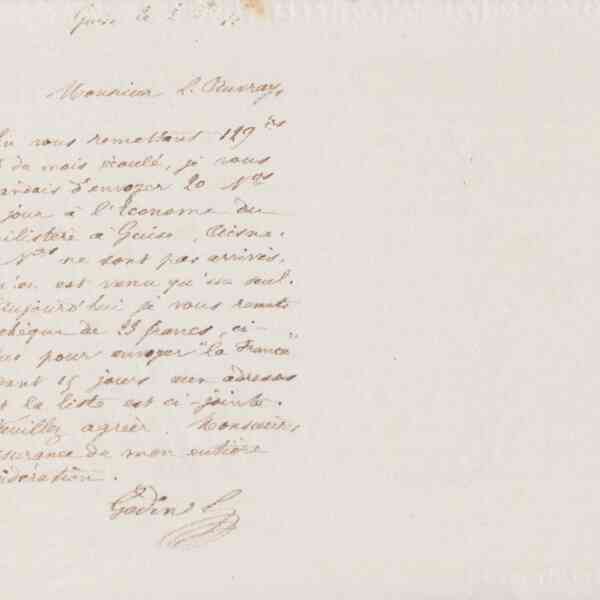 Guise le 2
Monsieur L. Auvray,
vous remettant 129 frs
du mois écoulé, je vous
d'envoyer 20 Nos
jour à l'Econome du
à Guise, Aisne.
Nos ne sont pas arrivés.
est venu qu'un seul.
Aujourd'hui je vous remets
chèque de 23 francs, ci-
pour envoyer "la France"
15 jours aux adresses
la liste est ci-jointe.
Veuillez agréer, Monsieur,
de mon entière
Godin